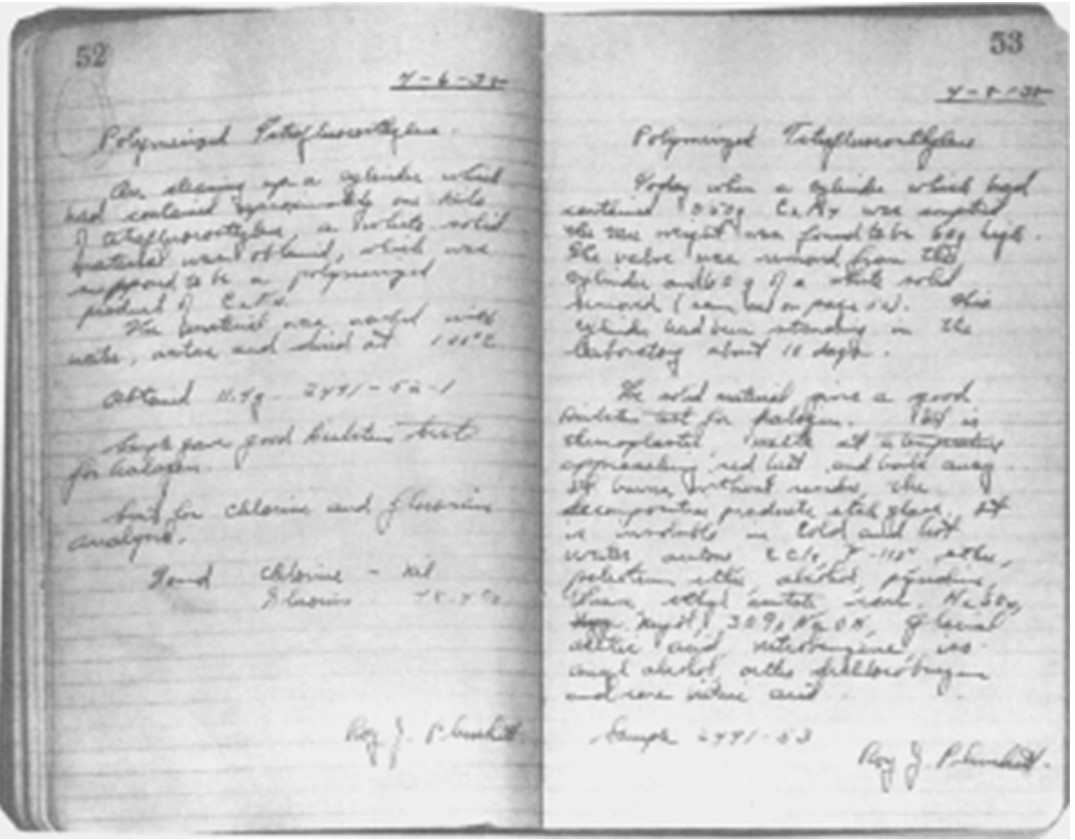 52
4-6-38
Polymerized Tetrafluoroethylene.
On cleaning up a cylinder which
had contained approximately one kilo
of tetrafluoroethylene, a white solid
material was obtained, which was
supposed to be a polymerized
product of C2F4.
The material was washed with
water, and dried at
Obtained 11.4g 2491-52-1
Sample gave good Beilstein test
for halogen.
for chlorine and fluorine
analysis.
Found Chlorine - nil
Fluorine
Roy J. Plunkett.
53
4-8-38
Polymerized Tetrafluoroethylene
Today when a cylinder which had
contained C2F4 was emptied
the weight was found to be 60g high.
The valve was removed from the
cylinder and 60 g of a white solid
removed ( on page 52). This
cylinder had been standing in the
laboratory about 10 days.
The solid material gave a good
Beilstein test for halogen. It is
thermoplastic melts at a temperature
approaching red heat and boils away.
It burns without residue the
decomposition products etch glass. It
is insoluble in cold and hot
water ether,
petroleum ether alcohol, pyridine,
ethyl acetate
30% NaOH, glacial
acetic acid, nitrobenzene, iso
amyl alcohol, ortho dichlorobenzene
and nitric acid
Sample 2491-53
Roy J. Plunkett.